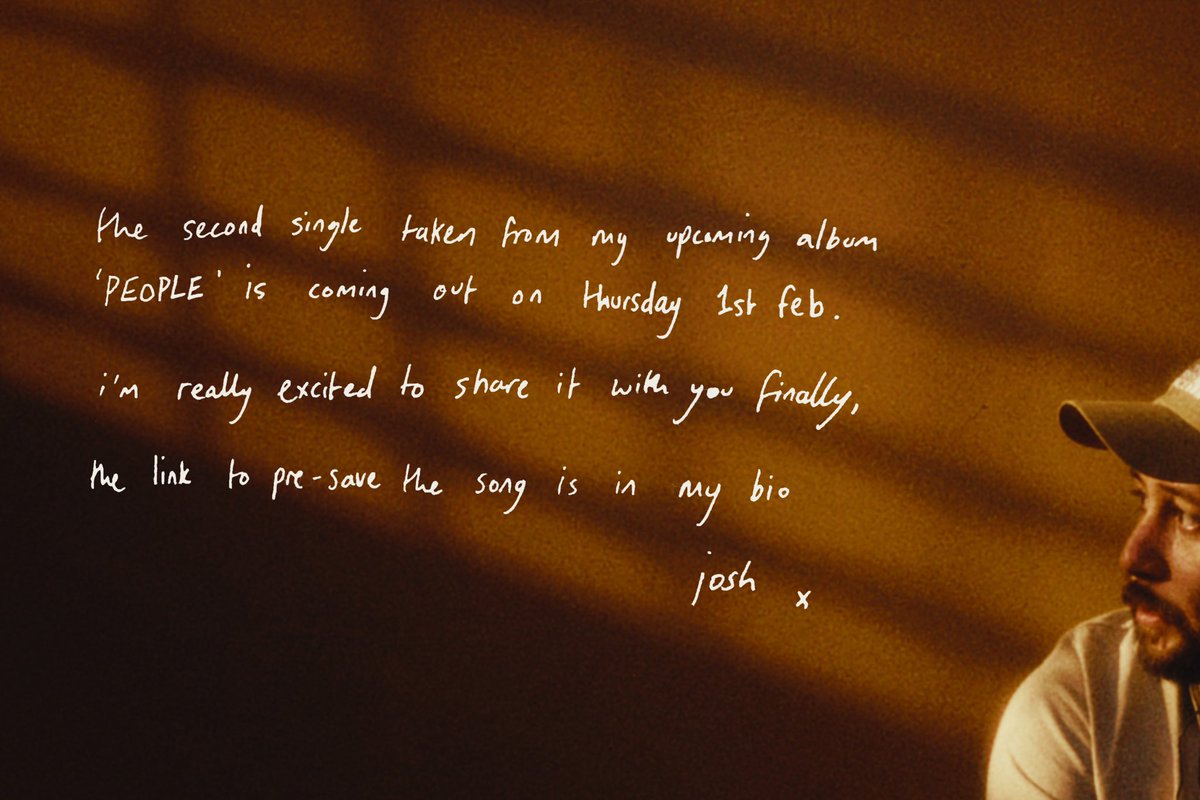 the second single taken from my upcoming album
'PEOPLE' is coming out on thursday 1st feb.
i'm really excited to share it with you finally,
the link to pre-save the song is in my bio
josh x